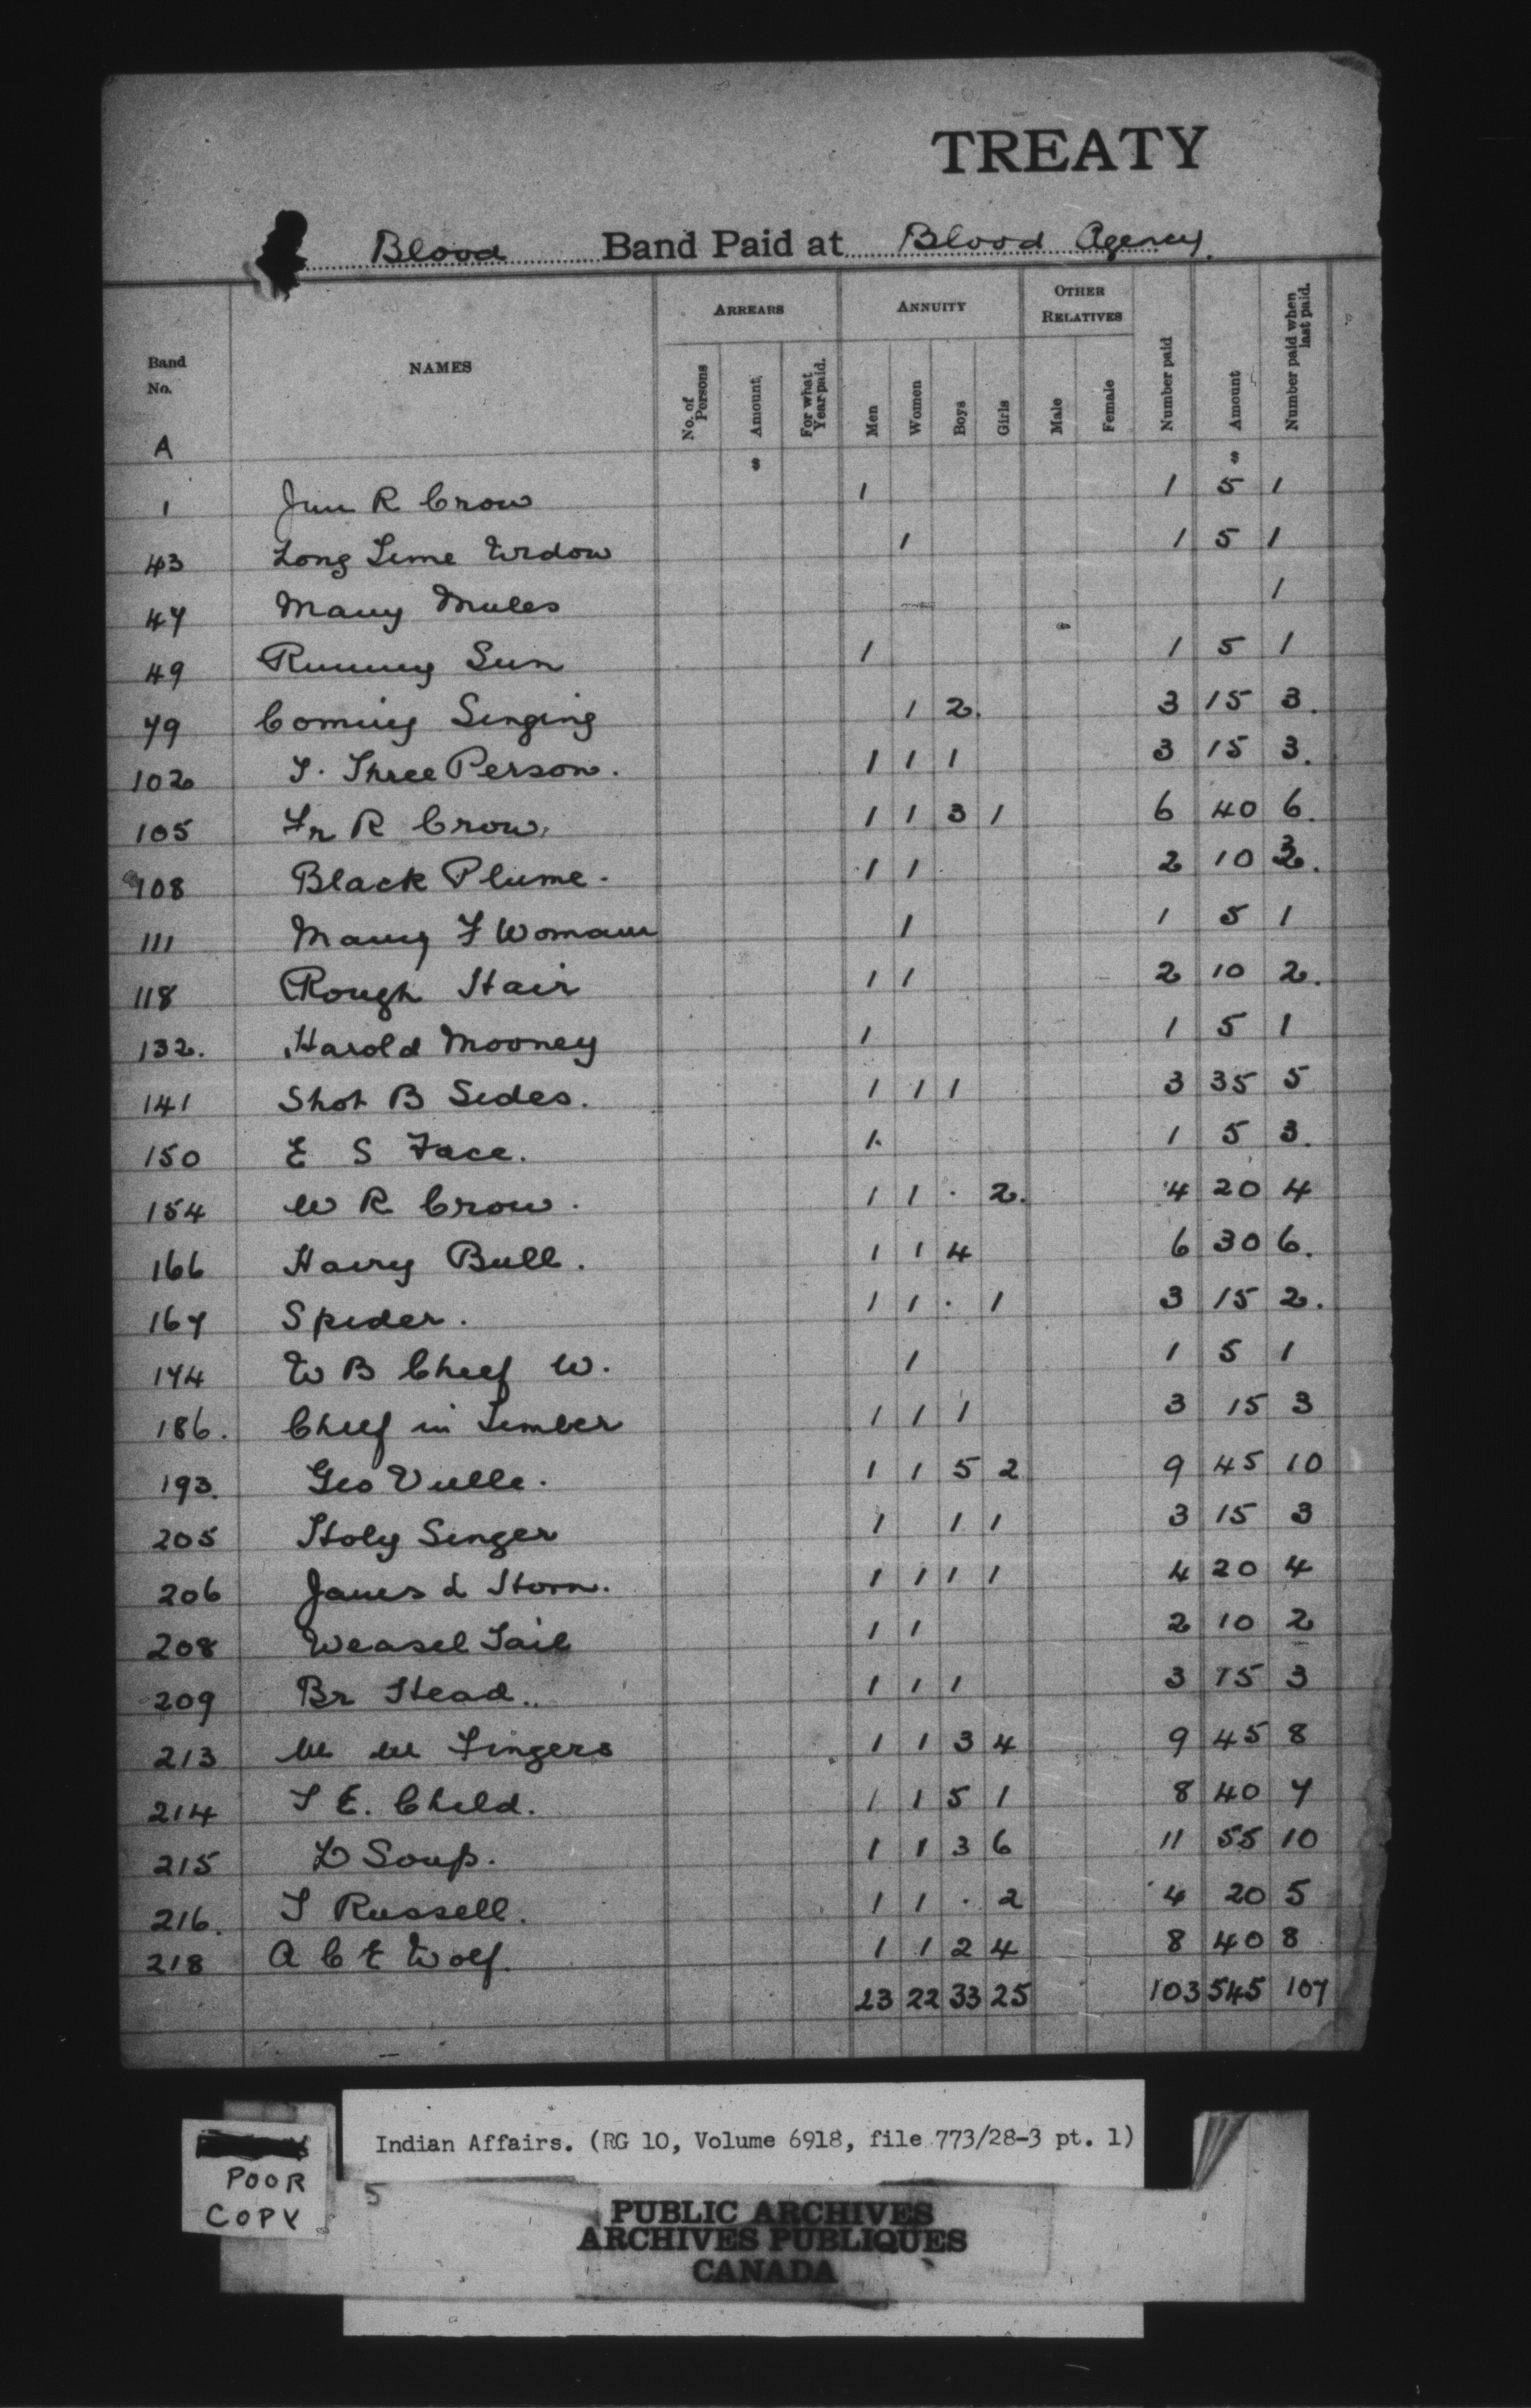 TREATY
Blood Band Paid at Blood Agency.
ARREARS ANNUITY OTHER RELATIVES
Band No. NAMES No. of Persons Amount. For what Year paid. Men Women Boys Girls Male Female Number paid Amount Number paid when last paid.
A $ $
1 Jim R Crow 1 1 5 1
43 Long Time Widow 1 1 5 1
47 Many Mules 1
49 Running Sun 1 1 5 1
79 Coming Singing 1 2. 3 15 3.
102 T. Three Person. 1 1 1 3 15 3.
105 Fr R Crow. 1 1 3 1 6 40 6.
108 Black Plume. 1 1 2 10 3.
111 Many F Woman 1 1 5 1
118 Rough Hair 1 1 2 10 2.
132. Harold Mooney 1 1 5 1
141 Shot B Sides. 1 1 1 3 35 5
150 E S Face. 1. 1 5 3.
154 W R Crow. 1 1 . 2. 4 20 4
166 Harry Bull. 1 1 4 6 30 6.
167 Spider. 1 1 . 1 3 15 2.
174 W B Chief W. 1 1 5 1
186. Chief in Timber 1 1 1 3 15 3
193. Geo Vielle. 1 1 5 2 9 45 10
205 Holy Singer 1 1 1 3 15 3
206 James L Horn. 1 1 1 1 4 20 4
208 Weasel Tail 1 1 2 10 2
209 Br Head.. 1 1 1 3 15 3
213 M M Fingers 1 1 3 4 9 45 8
214 T E. Child. 1 1 5 1 8 40 7
215 D Soup. 1 1 3 6 11 55 10
216. T Russell. 1 1 . 2 4 20 5
218 A C E Wolf. 1 1 2 4 8 40 8
23 22 33 25 103 545 107
Indian Affairs. (RG 10, Volume 6918, file 773/28-3 pt. 1)
POOR
COPY
5
PUBLIC ARCHIVES
ARCHIVES PUBLIQUES
CANADA